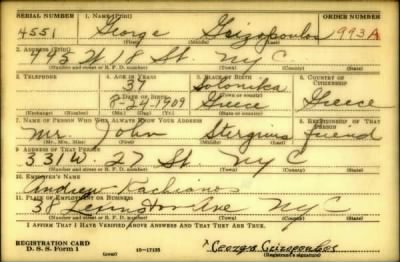 SERIAL NUMBER 1. NAME (Print) ORDER NUMBER
4551 George Grizopoulos 993A
(First) (Middle) (Last)
2. ADDRESS (Print)
445 W 18 St. NYC
(Number and street or R. F. D. number) (Town) (County) (State)
3. TELEPHONE 4. AGE IN YEARS 5. PLACE OF BIRTH 6. COUNTRY OF CITIZENSHIP
37 Solonika
DATE OF BIRTH
8-24-1909 Greece Greece
(Exchange) (No.) (Mo.) (Day) (Yr.) (State or country)
7. NAME OF PERSON WHO WILL ALWAYS KNOW YOUR ADDRESS 8. RELATIONSHIP OF THAT PERSON
Mr. John Stergius friend
(Mr., Mrs., Miss) (First) (Middle) (Last)
9. ADDRESS OF THAT PERSON
331 W. 27 St. NYC
(Number and street or R. F. D. number) (Town) (County) (State)
10. EMPLOYER'S NAME
Andrew Kachianos
11. PLACE OF EMPLOYMENT OR BUSINESS
58 Lexington Ave NYC
(Number and street or R. F. D. number) (Town) (County) (State)
I AFFIRM THAT I HAVE VERIFIED ABOVE ANSWERS AND THAT THEY ARE TRUE.
REGISTRATION CARD
D. S. S. Form 1 16-17105 George Grizopoulos
(Registrant's signature)